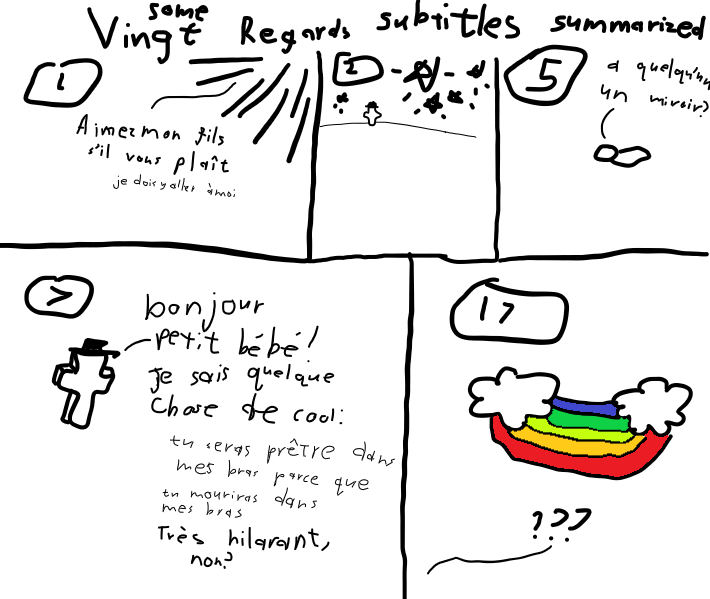 some
Vingt Regards subtitles summarized
1
Aimez mon fils
s'il vous plaît
je dois y aller à moi
2
5
a quelqu'un
un miroir?
>
bonjour
petit bébé!
je sais quelque
chose de cool:
tu seras prêtre dans
mes bras parce que
tu mouriras dans
mes bras
Très hilarant,
non?
17
???